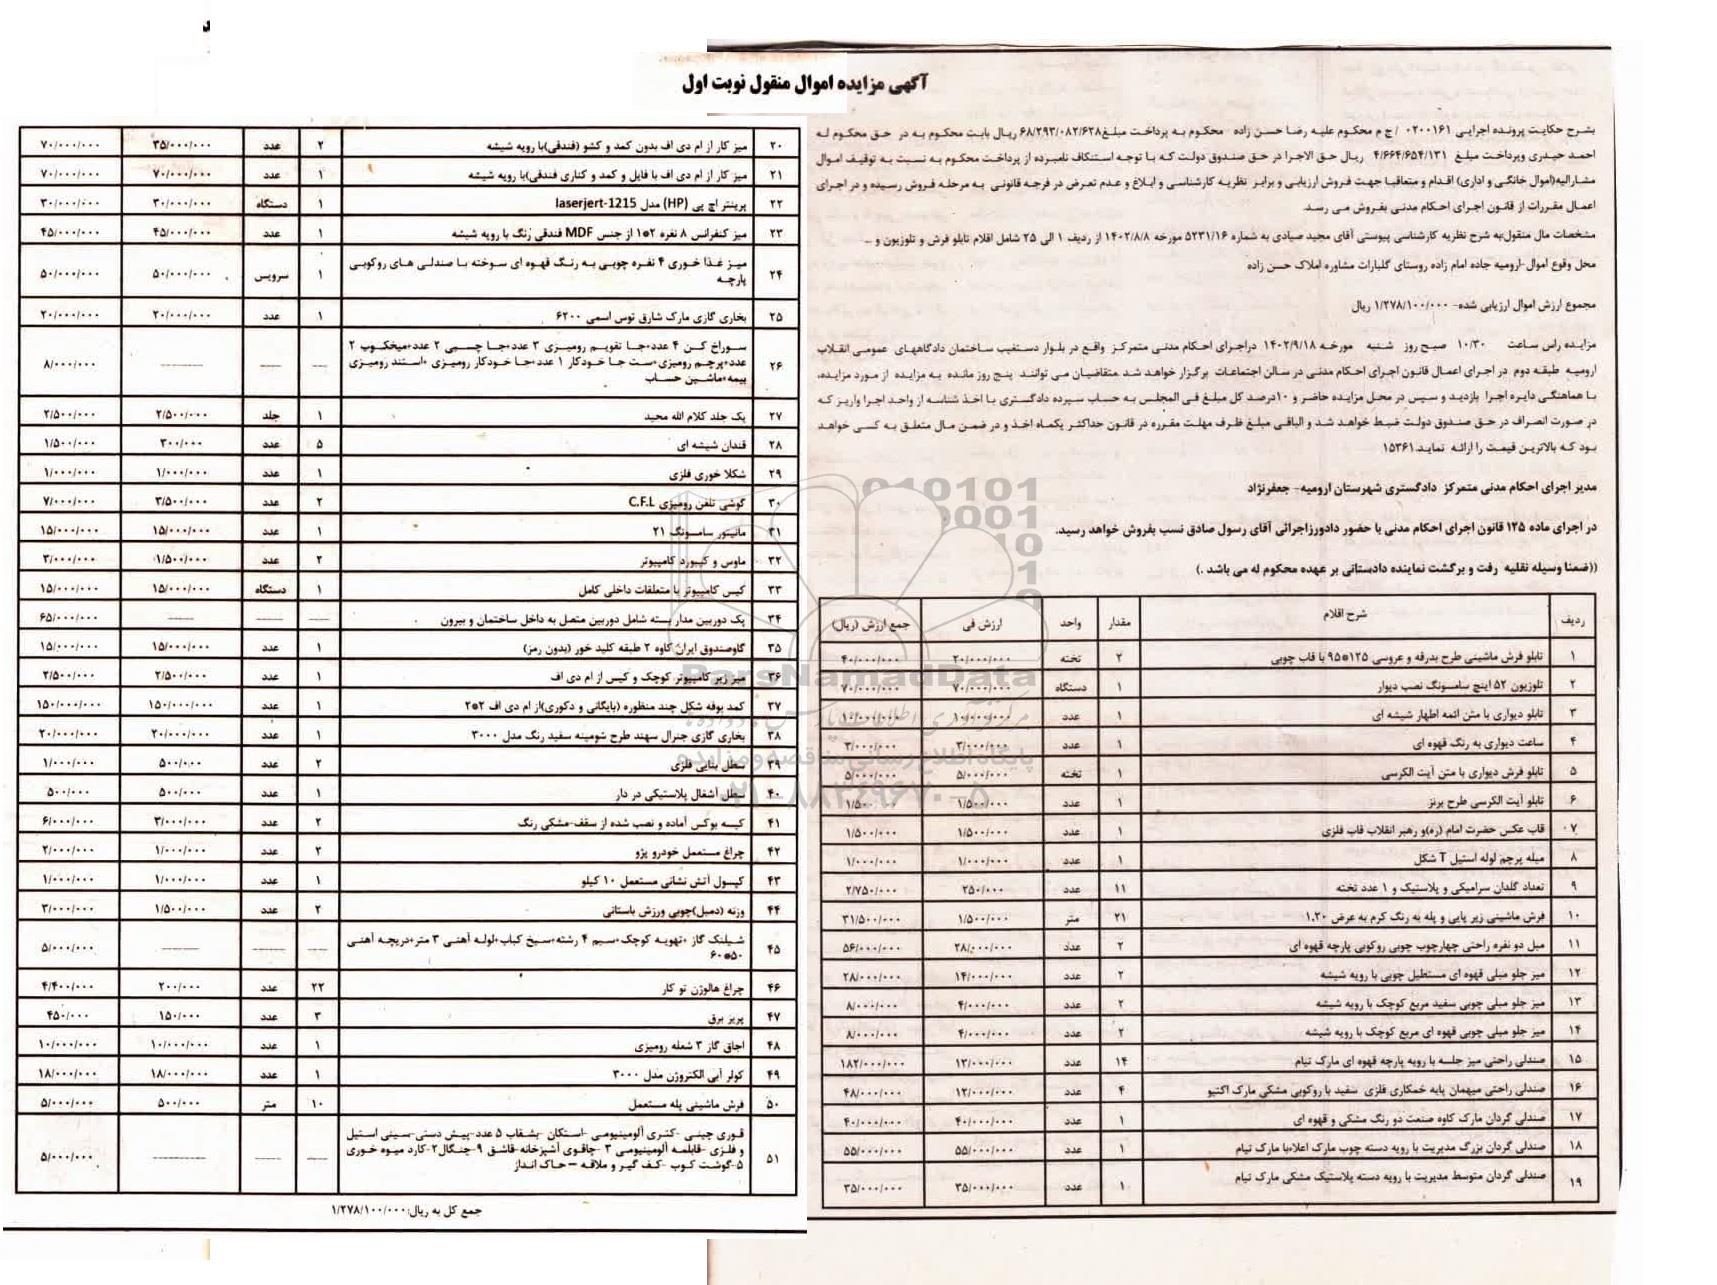 آگهی مزایده اموال منقول نوبت اول
بشرح حکایت پرونده اجرایی ۰۲۰۰۱۶۱ /ج م محکوم علیه رضا حسن زاده محکوم به پرداخت مبلغ۶۸/۲۹۳/۰۸۲/۶۲۸ ریال بابت محکوم به در حق محکوم له
احمد حیدری وپرداخت مبلغ ۴/۶۶۴/۶۵۴/۱۳۱ ریال حق الاجرا در حق صندوق دولت که با توجه استنکاف نامبرده از پرداخت محکوم به نسبت به توقیف اموال
مشارالیه(اموال خانگی و اداری) اقدام و متعاقبا جهت فروش ارزیابی و برابر نظریه کارشناسی و ابلاغ و عدم تعرض در فرجه قانونی به مرحله فروش رسیده و در اجرای
اعمال مقررات از قانون اجرای احکام مدنی بفروش می رسد.
مشخصات مال منقول:به شرح نظریه کارشناسی پیوستی آقای مجید صیادی به شماره ۵۲۳۱/۱۶ مورخه ۱۴۰۲/۸/۸ از ردیف ۱ الی ۲۵ شامل اقلام تابلو فرش و تلوزیون و ...
محل وقوع اموال -ارومیه جاده امام زاده روستای گلبارات مشاوره املاک حسن زاده
مجموع ارزش اموال ارزیابی شده- ۱/۲۷۸/۱۰۰/۰۰۰ ریال
مزایده راس ساعت ۱۰/۳۰ صبح روز شنبه مورخه ۱۴۰۲/۹/۱۸ دراجرای احکام مدنی متمرکز واقع در بلوار دستغیب ساختمان دادگاههای عمومی انقلاب
ارومیه طبقه دوم در اجرای اعمال قانون اجرای احکام مدنی در سالن اجتماعات برگزار خواهد شد.متقاضیان می توانند پنج روز مانده به مزایده از مورد مزایده،
با هماهنگی دایره اجرا بازدید و سپس در محل مزایده حاضر و ۱۰درصد کل مبلغ فی المجلس به حساب سپرده دادگستری با اخذ شناسه از واحد اجرا واریز که
در صورت انصراف در حق صندوق دولت ضبط خواهد شد و الباقی مبلغ ظرف مهلت مقرره در قانون حداکثر یکماه اخذ و در ضمن مال متعلق به کسی خواهد
بود که بالاترین قیمت را ارائه نماید.۱۵۳۶۱
مدیر اجرای احکام مدنی متمرکز دادگستری شهرستان ارومیه- جعفرنژاد
در اجرای ماده ۱۲۵ قانون اجرای احکام مدنی با حضور دادورزاجرائی آقای رسول صادق نسب بفروش خواهد رسید.
((ضمنا وسیله نقلیه رفت و برگشت نماینده دادستانی بر عهده محکوم له می باشد .)
ردیف شرح اقلام مقدار واحد ارزش فی جمع ارزش (ریال)
۱ تابلو فرش ماشینی طرح بدرقه و عروسی ۱۲۵*۹۵ با قاب چوبی ۲ تخته ۲۰/۰۰۰/۰۰۰ ۴۰/۰۰۰/۰۰۰
۲ تلوزیون ۵۲ اینچ سامسونگ نصب دیوار ۱ دستگاه ۷۰/۰۰۰/۰۰۰ ۷۰/۰۰۰/۰۰۰
۳ تابلو دیواری با متن ائمه اطهار شیشه ای ۱ عدد ۱۰/۰۰۰/۰۰۰ ۱۰/۰۰۰/۰۰۰
۴ ساعت دیواری به رنگ قهوه ای ۱ عدد ۳/۰۰۰/۰۰۰ ۳/۰۰۰/۰۰۰
۵ تابلو فرش دیواری با متن آیت الکرسی ۱ تخته ۵/۰۰۰/۰۰۰ ۵/۰۰۰/۰۰۰
۶ تابلو آیت الکرسی طرح برنز ۱ عدد ۱/۵۰۰/۰۰۰ ۱/۵۰۰/۰۰۰
۰۷ قاب عکس حضرت امام (ره)و رهبر انقلاب قاب فلزی ۱ عدد ۱/۵۰۰/۰۰۰ ۱/۵۰۰/۰۰۰
۸ میله پرچم لوله استیل T شکل ۱ عدد ۱/۰۰۰/۰۰۰ ۱/۰۰۰/۰۰۰
۹ تعداد گلدان سرامیکی و پلاستیک و ۱ عدد تخته ۱۱ عدد ۲۵۰/۰۰۰ ۲/۷۵۰/۰۰۰
۱۰ فرش ماشینی زیر پایی و پله به رنگ کرم به عرض ۱.۲۰ ۲۱ متر ۱/۵۰۰/۰۰۰ ۳۱/۵۰۰/۰۰۰
۱۱ مبل دو نفره راحتی چهارچوب چوبی روکوبی پارچه قهوه ای ۲ عدد ۲۸/۰۰۰/۰۰۰ ۵۶/۰۰۰/۰۰۰
۱۲ میز جلو مبلی قهوه ای مستطیل چوبی با رویه شیشه ۲ عدد ۱۴/۰۰۰/۰۰۰ ۲۸/۰۰۰/۰۰۰
۱۳ میز جلو مبلی چوبی سفید مربع کوچک با رویه شیشه ۲ عدد ۴/۰۰۰/۰۰۰ ۸/۰۰۰/۰۰۰
۱۴ میز جلو مبلی چوبی قهوه ای مربع کوچک با رویه شیشه ۲ عدد ۴/۰۰۰/۰۰۰ ۸/۰۰۰/۰۰۰
۱۵ صندلی راحتی میز جلسه با رویه پارچه قهوه ای مارک تیام ۱۴ عدد ۱۳/۰۰۰/۰۰۰ ۱۸۲/۰۰۰/۰۰۰
۱۶ صندلی راحتی میهمان پایه خمکاری فلزی سفید با روکوبی مشکی مارک اکتیو ۴ عدد ۱۲/۰۰۰/۰۰۰ ۴۸/۰۰۰/۰۰۰
۱۷ صندلی گردان مارک کاوه صنعت دو رنگ مشکی و قهوه ای ۱ عدد ۴۰/۰۰۰/۰۰۰ ۴۰/۰۰۰/۰۰۰
۱۸ صندلی گردان بزرگ مدیریت با رویه دسته چوب مارک اعلاءبا مارک تیام ۱ عدد ۵۵/۰۰۰/۰۰۰ ۵۵/۰۰۰/۰۰۰
۱۹ صندلی گردان متوسط مدیریت با رویه دسته پلاستیک مشکی مارک تیام ۱ عدد ۳۵/۰۰۰/۰۰۰ ۳۵/۰۰۰/۰۰۰
۲۰ میز کار از ام دی اف بدون کمد و کشو (فندقی)با رویه شیشه ۲ عدد ۳۵/۰۰۰/۰۰۰ ۷۰/۰۰۰/۰۰۰
۲۱ میز کار از ام دی اف با فایل و کمد و کناری فندقی)با رویه شیشه ۱ عدد ۷۰/۰۰۰/۰۰۰ ۷۰/۰۰۰/۰۰۰
۲۲ پرینتر اچ پی (HP) مدل laserjert-1215 ۱ دستگاه ۳۰/۰۰۰/۰۰۰ ۳۰/۰۰۰/۰۰۰
۲۳ میز کنفرانس ۸ نفره ۲*۱ از جنس MDF فندقی رنگ با رویه شیشه ۱ عدد ۴۵/۰۰۰/۰۰۰ ۴۵/۰۰۰/۰۰۰
۲۴ میز غذا خوری ۴ نفره چوبی به رنگ قهوه ای سوخته با صندلی های روکوبی
پارچه ۱ سرویس ۵۰/۰۰۰/۰۰۰ ۵۰/۰۰۰/۰۰۰
۲۵ بخاری گازی مارک شارق توس اسمی ۶۲۰۰ ۱ عدد ۲۰/۰۰۰/۰۰۰ ۲۰/۰۰۰/۰۰۰
۲۶ سوراخ کن ۴ عدد+جا تقویم رومیزی ۳ عدد+جا چسبی ۲ عدد+میخکوب ۲
عدد+پرچم رومیزی+ست جا خودکار ۱ عدد+جا خودکار رومیزی +استند رومیزی
بیمه+ماشین حساب ۸/۰۰۰/۰۰۰
۲۷ یک جلد کلام الله مجید ۱ جلد ۲/۵۰۰/۰۰۰ ۲/۵۰۰/۰۰۰
۲۸ قندان شیشه ای ۵ عدد ۳۰۰/۰۰۰ ۱/۵۰۰/۰۰۰
۲۹ شکلا خوری فلزی ۱ عدد ۱/۰۰۰/۰۰۰ ۱/۰۰۰/۰۰۰
۳۰ گوشی تلفن رومیزی C.F.L ۲ عدد ۳/۵۰۰/۰۰۰ ۷/۰۰۰/۰۰۰
۳۱ مانیتور سامسونگ ۲۱ ۱ عدد ۱۵/۰۰۰/۰۰۰ ۱۵/۰۰۰/۰۰۰
۳۲ ماوس و کیبورد کامپیوتر ۲ عدد ۱/۵۰۰/۰۰۰ ۳/۰۰۰/۰۰۰
۳۳ کیس کامپیوتر با متعلقات داخلی کامل ۱ دستگاه ۱۵/۰۰۰/۰۰۰ ۱۵/۰۰۰/۰۰۰
۳۴ پک دوربین مدار بسته شامل دوربین متصل به داخل ساختمان و بیرون ۶۵/۰۰۰/۰۰۰
۳۵ گاوصندوق ایران کاوه ۲ طبقه کلید خور (بدون رمز) ۱ عدد ۱۵/۰۰۰/۰۰۰ ۱۵/۰۰۰/۰۰۰
۳۶ میز زیر کامپیوتر کوچک و کیس از ام دی اف ۱ عدد ۲/۵۰۰/۰۰۰ ۲/۵۰۰/۰۰۰
۳۷ کمد بوفه شکل چند منظوره (بایگانی و دکوری)از ام دی اف ۲*۲ ۱ عدد ۱۵۰/۰۰۰/۰۰۰ ۱۵۰/۰۰۰/۰۰۰
۳۸ بخاری گازی جنرال سهند طرح شومینه سفید رنگ مدل ۳۰۰۰ ۱ عدد ۲۰/۰۰۰/۰۰۰ ۲۰/۰۰۰/۰۰۰
۳۹ سطل بنایی فلزی ۲ عدد ۵۰۰/۰۰۰ ۱/۰۰۰/۰۰۰
۴۰ سطل آشغال پلاستیکی در دار ۱ عدد ۵۰۰/۰۰۰ ۵۰۰/۰۰۰
۴۱ کیسه بوکس آماده و نصب شده از سقف-مشکی رنگ ۲ عدد ۳/۰۰۰/۰۰۰ ۶/۰۰۰/۰۰۰
۴۲ چراغ مستعمل خودرو پژو ۲ عدد ۱/۰۰۰/۰۰۰ ۲/۰۰۰/۰۰۰
۴۳ کپسول آتش نشانی مستعمل ۱۰ کیلو ۱ عدد ۱/۰۰۰/۰۰۰ ۱/۰۰۰/۰۰۰
۴۴ وزنه (دمبل)چوبی ورزش باستانی ۲ عدد ۱/۵۰۰/۰۰۰ ۳/۰۰۰/۰۰۰
۴۵ شیلنگ گاز +تهویه کوچک+سیم ۴ رشته+سیخ کباب+لوله آهنی ۳ متر+دریچه آهنی
۵۰*۶۰ ۵/۰۰۰/۰۰۰
۴۶ چراغ هالوژن تو کار ۲۲ عدد ۲۰۰/۰۰۰ ۴/۴۰۰/۰۰۰
۴۷ پریز برق ۳ عدد ۱۵۰/۰۰۰ ۴۵۰/۰۰۰
۴۸ اجاق گاز ۳ شعله رومیزی ۱ عدد ۱۰/۰۰۰/۰۰۰ ۱۰/۰۰۰/۰۰۰
۴۹ کولر آبی الکتروژن مدل ۳۰۰۰ ۱ عدد ۱۸/۰۰۰/۰۰۰ ۱۸/۰۰۰/۰۰۰
۵۰ فرش ماشینی پله مستعمل ۱۰ متر ۵۰۰/۰۰۰ ۵/۰۰۰/۰۰۰
۵۱ قوری چینی -کتری آلومینیومی -استکان -بشقاب ۵ عدد-پیش دستی-سینی استیل
و فلزی -قابلمه آلومینیومی ۳ -چاقوی آشپزخانه-قاشق ۹-چنگال۲-کارد میوه خوری
۵-گوشت کوب -کف گیر و ملاقه – خاک انداز ۵/۰۰۰/۰۰۰
جمع کل به ریال:۱/۲۷۸/۱۰۰/۰۰۰
ParsNamadData
پایگاه اطلاع رسانی مناقصه و مزایده
۰۲۱-۸۸۳۴۹۶۷۰-۵